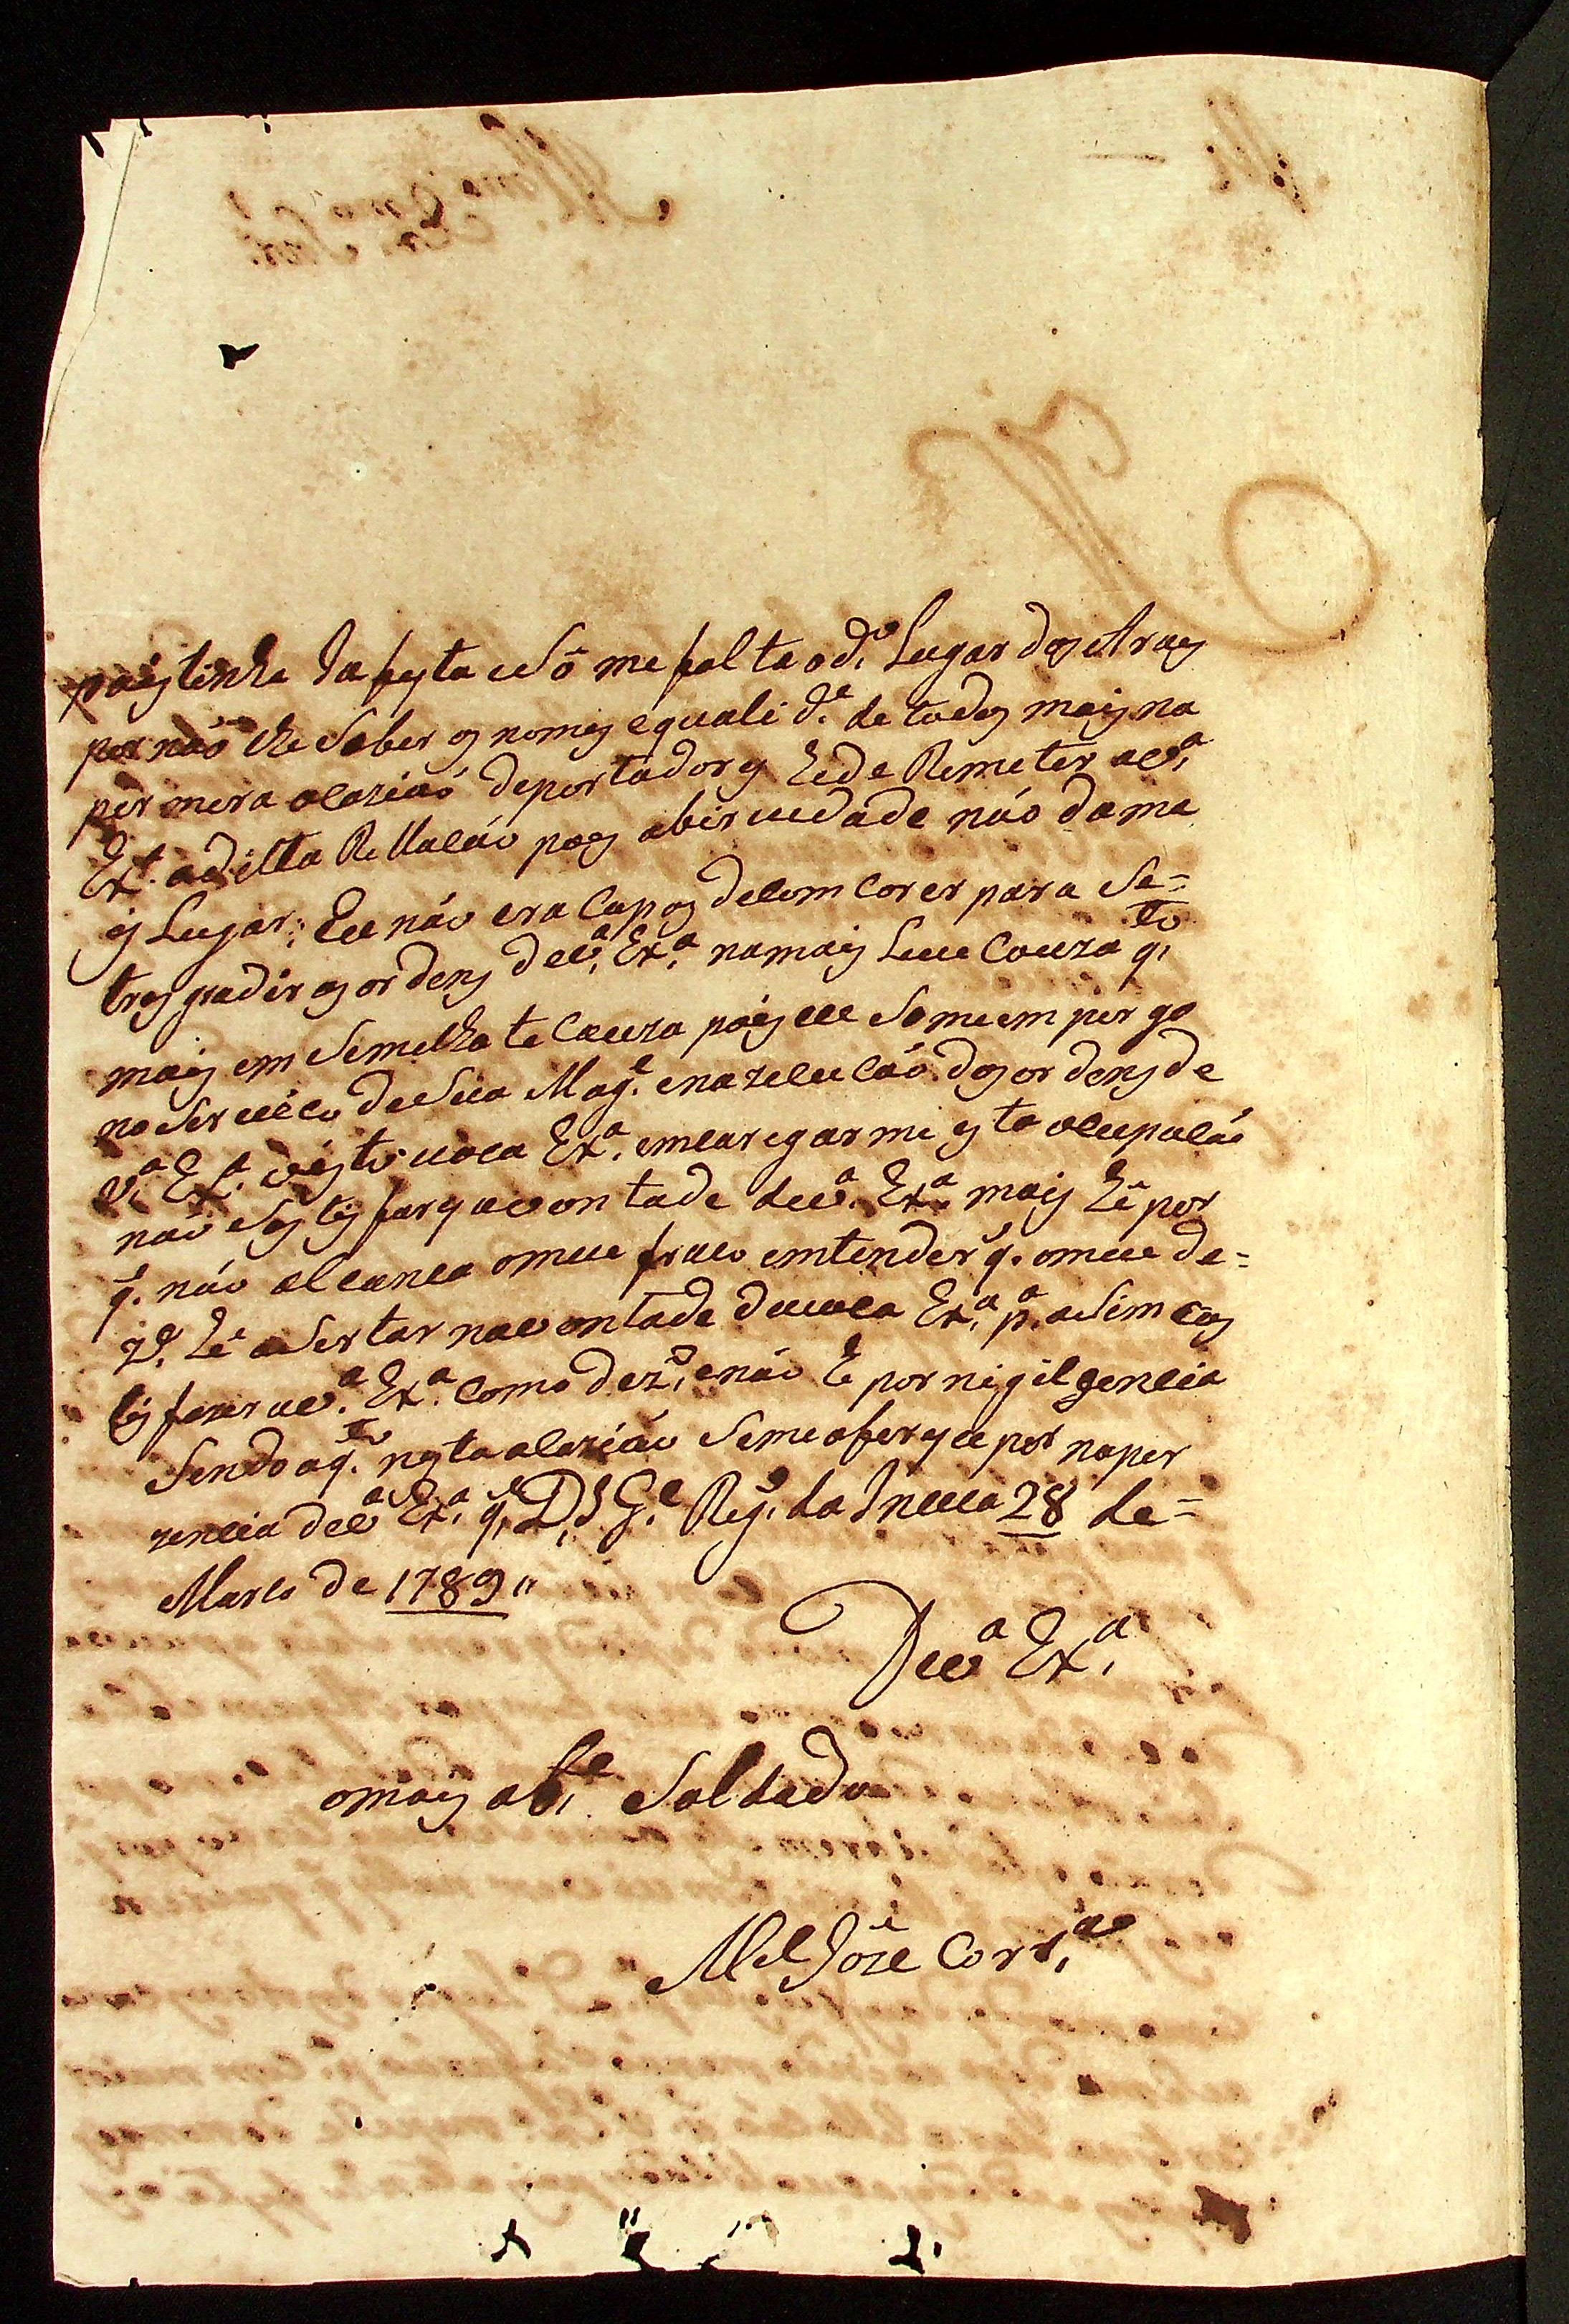 pois tinha Ja feyta e Só me falta o d.o Lugar dos Arays
por náo lhe Saber os nomes e qualid.e de todos mais na
permera ocaziaó de portadores hede Remeter a V.a
Ex.a a ditta Rellacáo pois abirvedade náo dama
is Lugar; Eu náo era capos de com Corer para Se=
tresgradir as ordens de V.a Ex.a na mais Leve Couza q.to
mais em Semelhate Couza pois eu So me em pergo
no Servico de Sua Mag.e e na zecucáo das ordens de
V.a Ex.a visto voca Ex.a emcaregarme esta ocupacáo
náo Sastisfary a vontade de V.a Ex.a mais hé por
q.' náo alcanca o meu fraco emtender q.' o meu de=
z.o hé a Sertar na vontade de voca Ex.a p.a a Sim Sas
tisfazer a V.a Ex.a como dez.o e náo hé por nigilgencia
Sendo a q.to nesta ocaziáo Se me oferese por na per
zencia de V.a Ex.a q.' D.s G.e Reg.o da Inuca 28 de=
Marco de 1789 "
De V.a Ex.a
o mais ob.e Soldado
M.el Joze Corr.ea